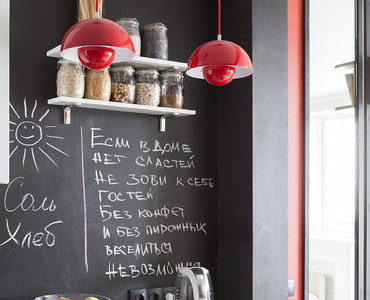 Соль
Хлеб
Если в доме
нет сластей
Не зови к себе
гостей
Без конфет
и без пирожных
веселиться
Невозможно